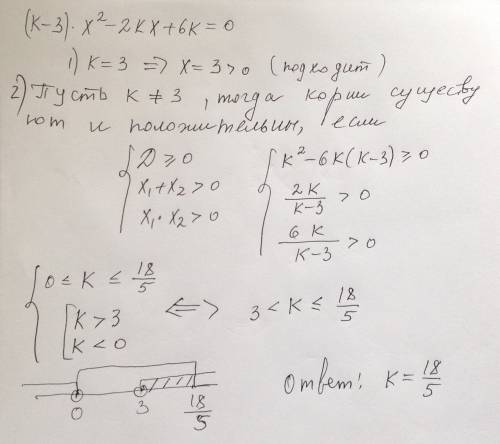 (K-3)·x²-2Kx+6K=0
1) K=3 ⇒ x=3>0 (подходит)
2) Пусть K≠3, тогда корни существу
ют и положительны, если
{ D⩾0 { K²-6K(K-3)⩾0
x₁+x₂>0 2K/(K-3) >0
x₁·x₂>0 6K/(K-3) >0
{ 0≤K≤18/5
[ K>3 ⇔ 3<K≤18/5
K<0
0 3 18/5
Ответ! K=18/5